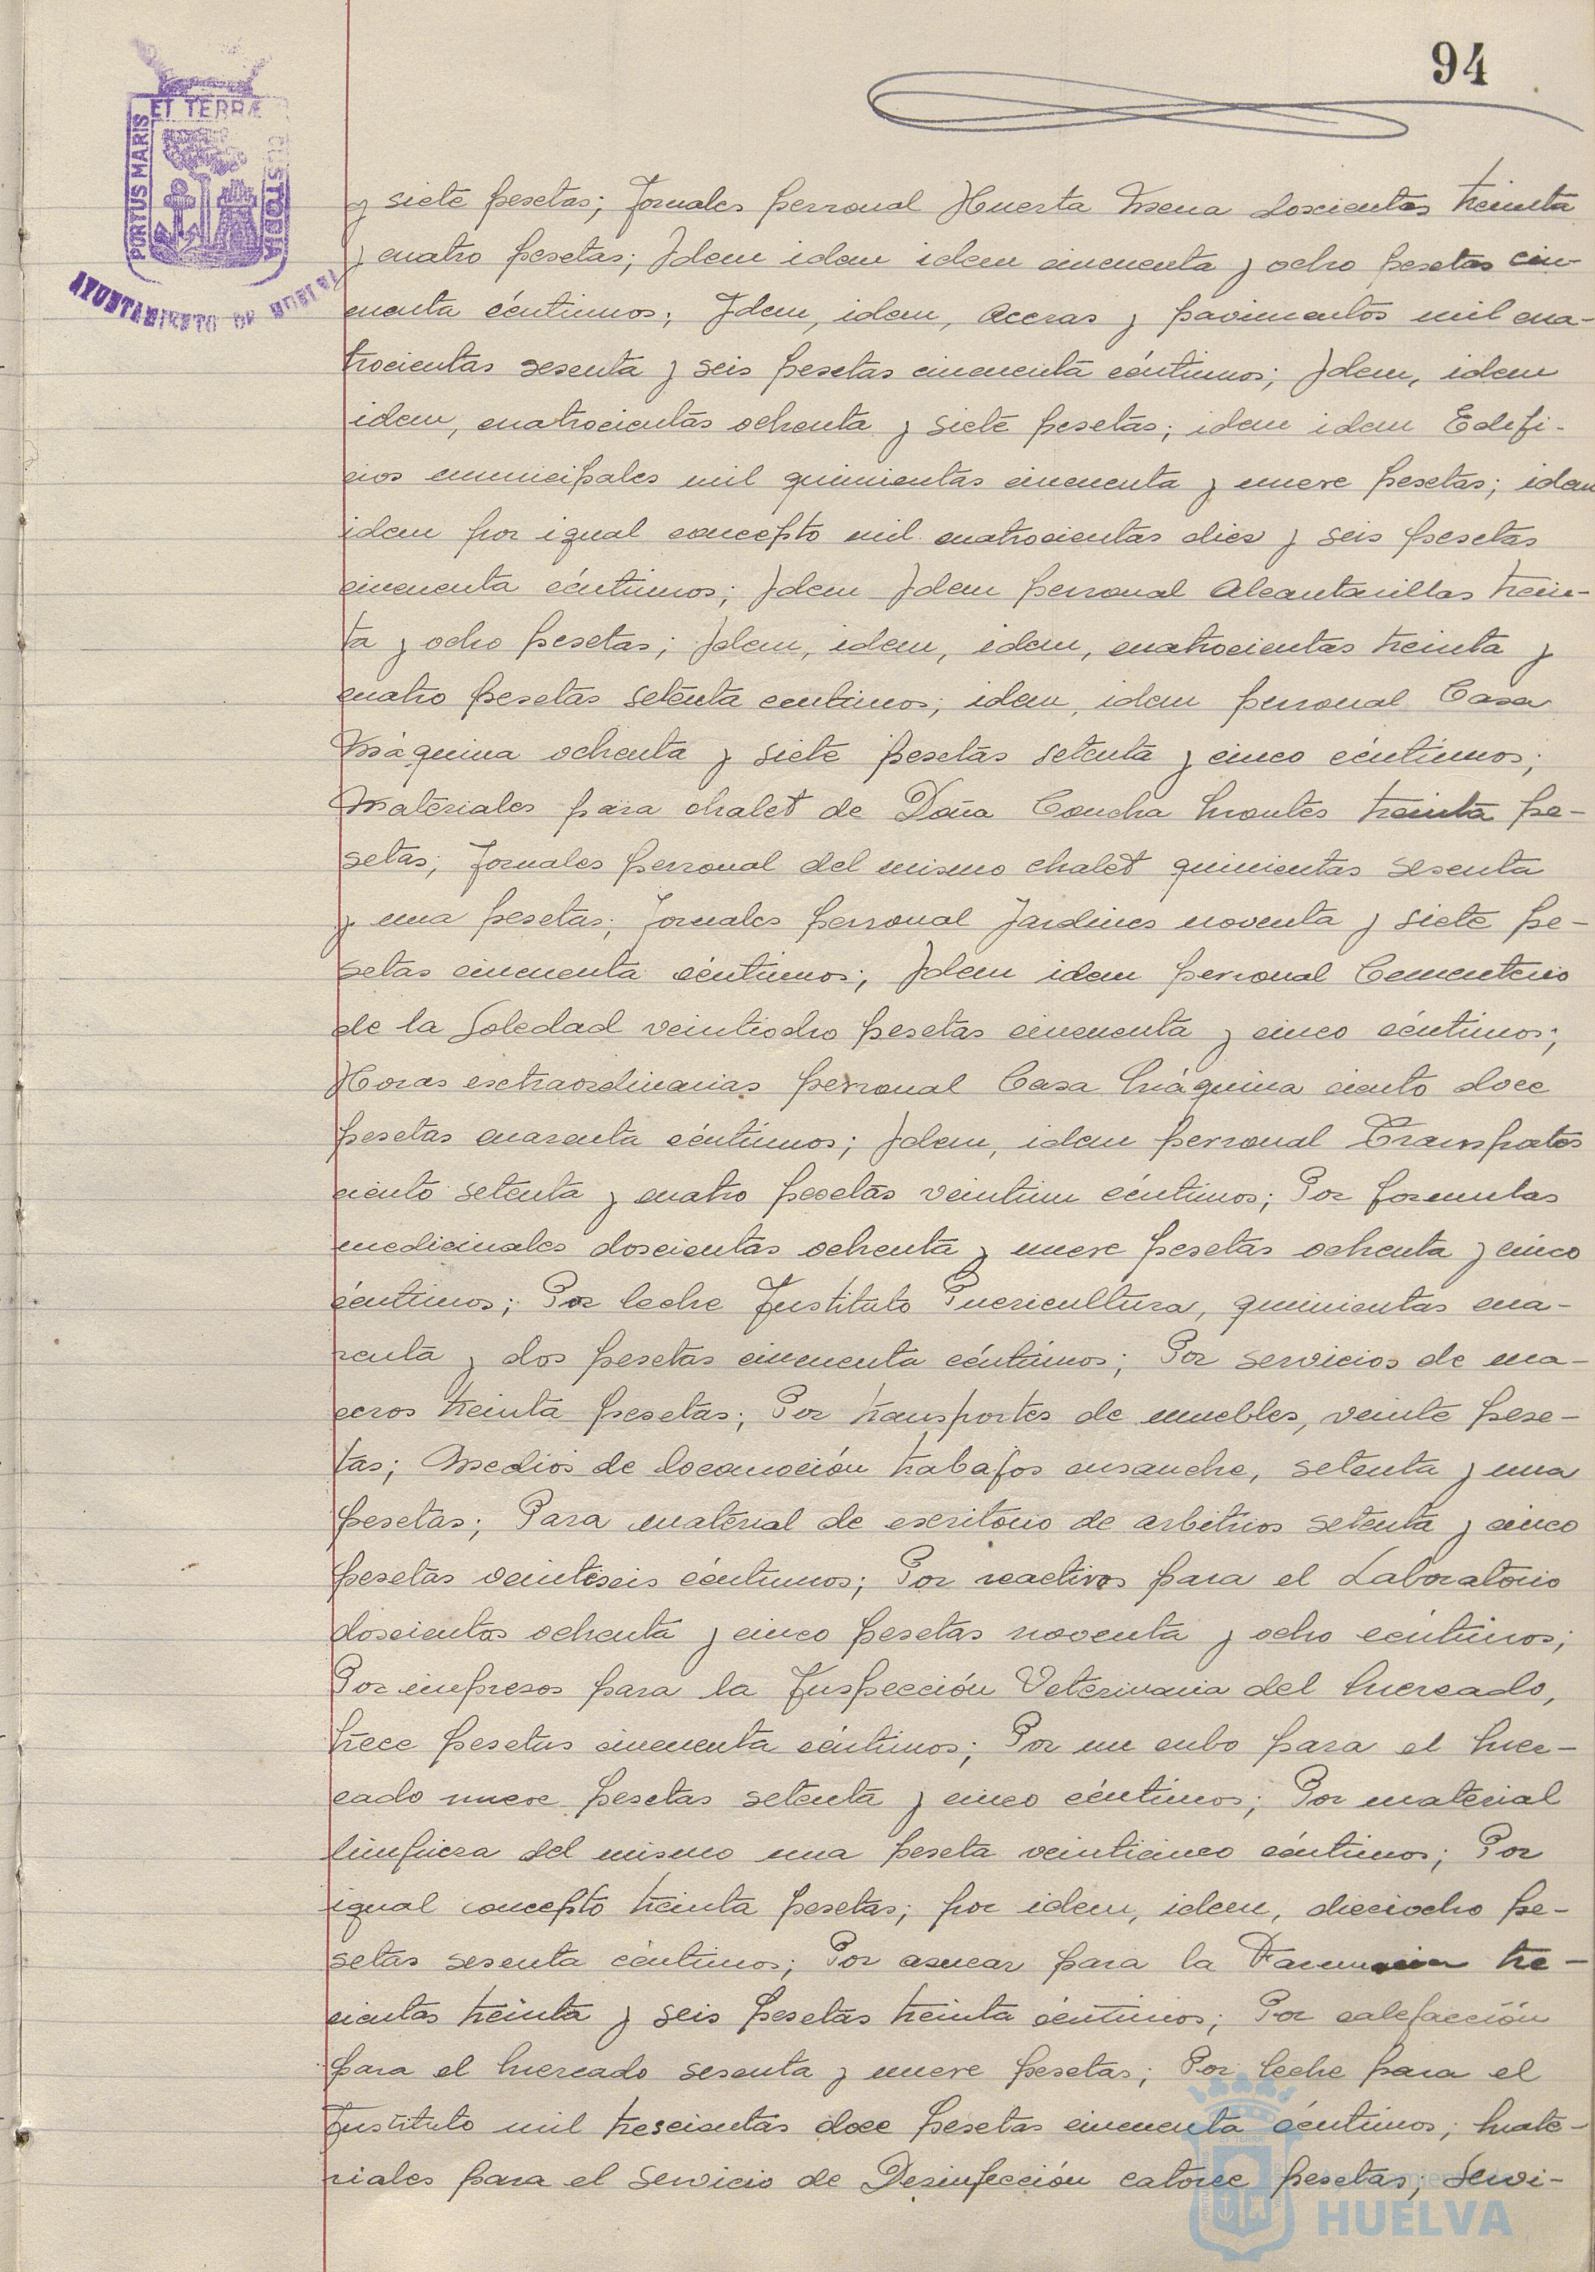 94
ET TERRÆ
PORTUS MARIS
CUSTODIA
AYUNTAMIENTO DE HUELVA
y siete pesetas; Jornales personal Huerta Mena doscientas treinta
y cuatro pesetas; Idem idem idem cincuenta y ocho pesetas cin-
cuenta céntimos; Idem, idem, Aceras y pavimentos mil cua-
trocientas sesenta y seis pesetas cincuenta céntimos; Idem, idem
idem, cuatrocientas ochenta y siete pesetas; idem idem Edifi-
cios municipales mil quinientas cincuenta y nueve pesetas; idem
idem por igual concepto mil cuatrocientas diez y seis pesetas
cincuenta céntimos; Idem Idem personal Alcantarillas trein-
ta y ocho pesetas; Idem, idem, idem, cuatrocientas treinta y
cuatro pesetas setenta centimos; idem, idem personal Casa
Máquina ochenta y siete pesetas setenta y cinco céntimos;
Materiales para chalet de Doña Concha Montes treinta pe-
setas; Jornales personal del mismo chalet quinientas sesenta
y una pesetas; Jornales personal Jardines noventa y siete pe-
setas cincuenta céntimos; Idem idem personal Cementerio
de la Soledad veintiocho pesetas cincuenta y cinco céntimos;
Horas extraordinarias personal Casa Máquina ciento doce
pesetas cuarenta céntimos; Idem, idem personal Transportes
ciento setenta y cuatro pesetas veintiun céntimos; Por formulas
medicinales doscientas ochenta y nueve pesetas ochenta y cinco
céntimos; Por leche Instituto Puericultura, quinientas cua-
renta y dos pesetas cincuenta céntimos; Por servicios de ma-
ceros treinta pesetas; Por transportes de muebles, veinte pese-
tas; Medios de locomoción trabajos ensanche, setenta y una
pesetas; Para material de escritorio de arbitrios setenta y cinco
pesetas veintiseis céntimos; Por reactivos para el Laboratorio
doscientos ochenta y cinco pesetas noventa y ocho céntimos;
Por impresos para la Inspección Veterinaria del Mercado,
trece pesetas cincuenta céntimos; Por un cubo para el Mer-
cado nueve pesetas setenta y cinco céntimos; Por material
limpieza del mismo una peseta veinticinco céntimos; Por
igual concepto treinta pesetas; por idem, idem, dieciocho pe-
setas sesenta céntimos; Por azucar para la Farmacia tre-
cientas treinta y seis pesetas treinta céntimos; Por calefacción
para el Mercado sesenta y nueve pesetas; Por leche para el
Instituto mil trescientas doce pesetas cincuenta céntimos; Mate-
riales para el servicio de Desinfección catorce pesetas; Servi-
HUELVA